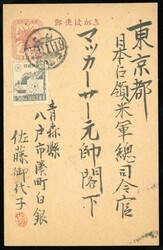 郵便はがき
東京都
日本占領米軍總司令官
マッカーサー元帥閣下
青森縣
八戸市湊町白銀
佐藤御代子